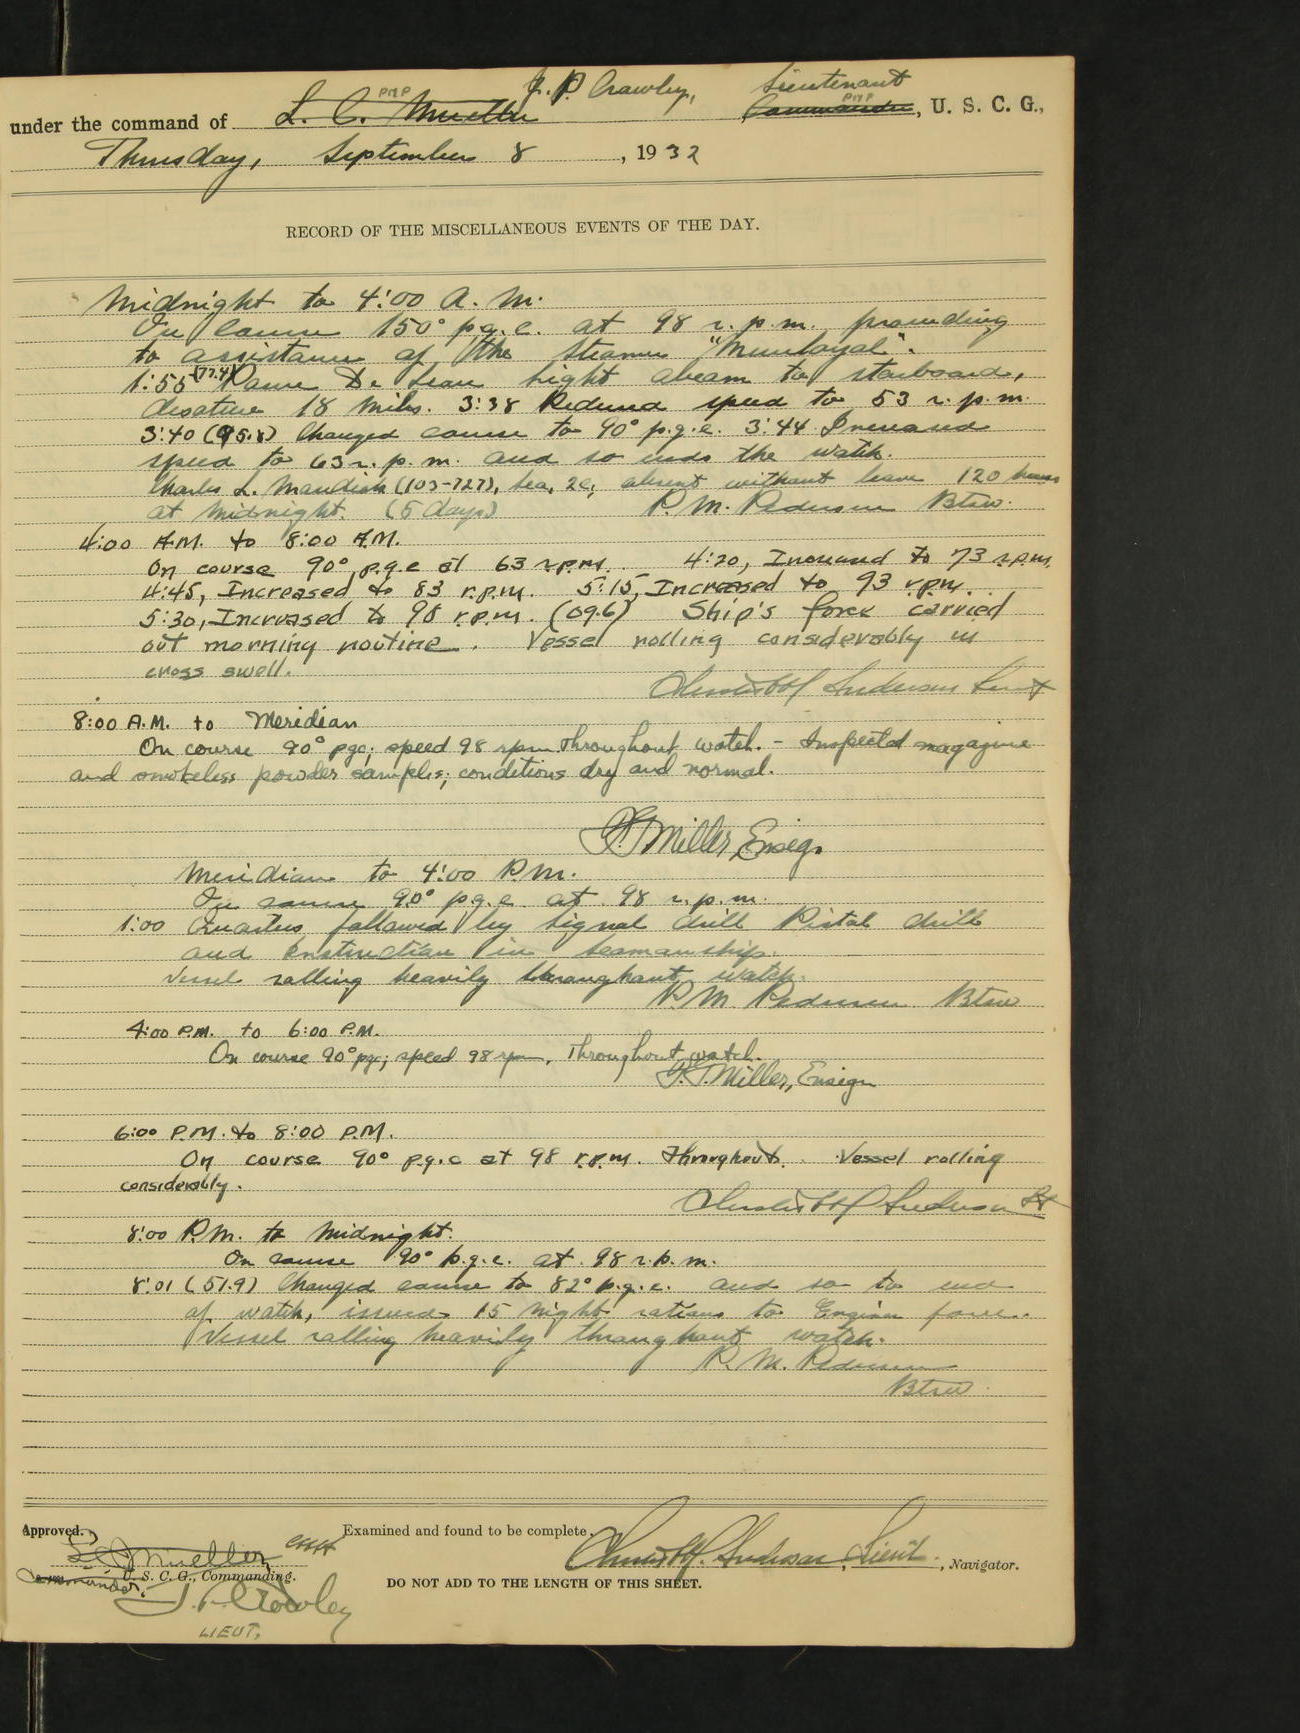 J. P. Crawley, Lieutenant
PMP PMP
under the command of L. C. Mueller Commander, U. S. C. G.,
Thursday, September 8, 1932
RECORD OF THE MISCELLANEOUS EVENTS OF THE DAY.
Midnight to 4:00 A. M.
On course 150° p.g.c. at 98 r.p.m. proceeding
to assistance of the steamer "Munloyal".
1:55 (77.4) Ponce De Leon Light abeam to starboard,
distance 18 miles. 3:38 Reduced speed to 53 r.p.m.
3:40 (95.8) Changed course to 90° p.g.c. 3:44 Increased
speed to 63 r.p.m. and so ends the watch.
Charles L. (103-727), Sea. 2c, absent without leave 120 hours
at midnight. (5 days) P. M. Pedersen Btsw.
4:00 A.M. to 8:00 A.M.
On course 90° p.g.c at 63 r.p.m. 4:20, Increased to 73 r.p.m.
4:45, Increased to 83 r.p.m. 5:15, Increased to 93 r.p.m.
5:30, Increased to 98 r.p.m. (09.6) Ship's force carried
out morning routine. Vessel rolling considerably in
cross swell.
Anderson Lieut
8:00 A.M. to Meridian
On course 90° pgc; speed 98 rpm throughout watch. - Inspected magazine
and smokeless powder samples; conditions dry and normal.
Miller, Ensign
Meridian to 4:00 P.M.
On course 90° p.g.c at 98 r.p.m.
1:00 Quarters followed by signal drill Pistol drill
and instruction in seamanship.
Vessel rolling heavily throughout watch.
P. M. Pedersen Btsw
4:00 P.M. to 6:00 P.M.
On course 90° pgc; speed 98 rpm, throughout watch.
Miller, Ensign
6:00 P.M. to 8:00 P.M.
On course 90° p.g.c at 98 r.p.m. throughout. Vessel rolling
considerably.
Anderson Lt
8:00 P.M. to Midnight.
On course 90° p.g.c. at 98 r.p.m.
8:01 (51.9) Changed course to 82° p.g.c. and so to end
of watch, issued 15 night rations to Engine force.
Vessel rolling heavily throughout watch.
P. M. Pedersen
Btsw.
Approved. Examined and found to be complete.
L C Mueller Anderson, Lieut., Navigator.
Commander, U. S. C. G., Commanding.
DO NOT ADD TO THE LENGTH OF THIS SHEET.
J. P. Crowley
LIEUT.